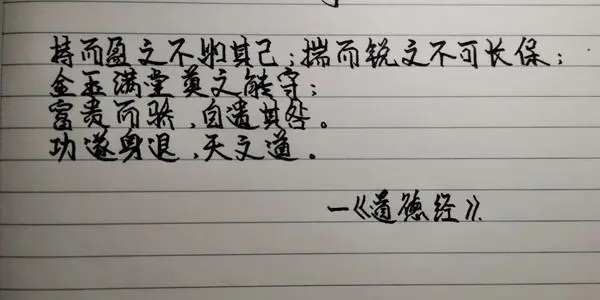 持而盈之不如其己；揣而锐之不可长保；
金玉满堂莫之能守；
富贵而骄，自遗其咎。
功遂身退，天之道。
—《道德经》